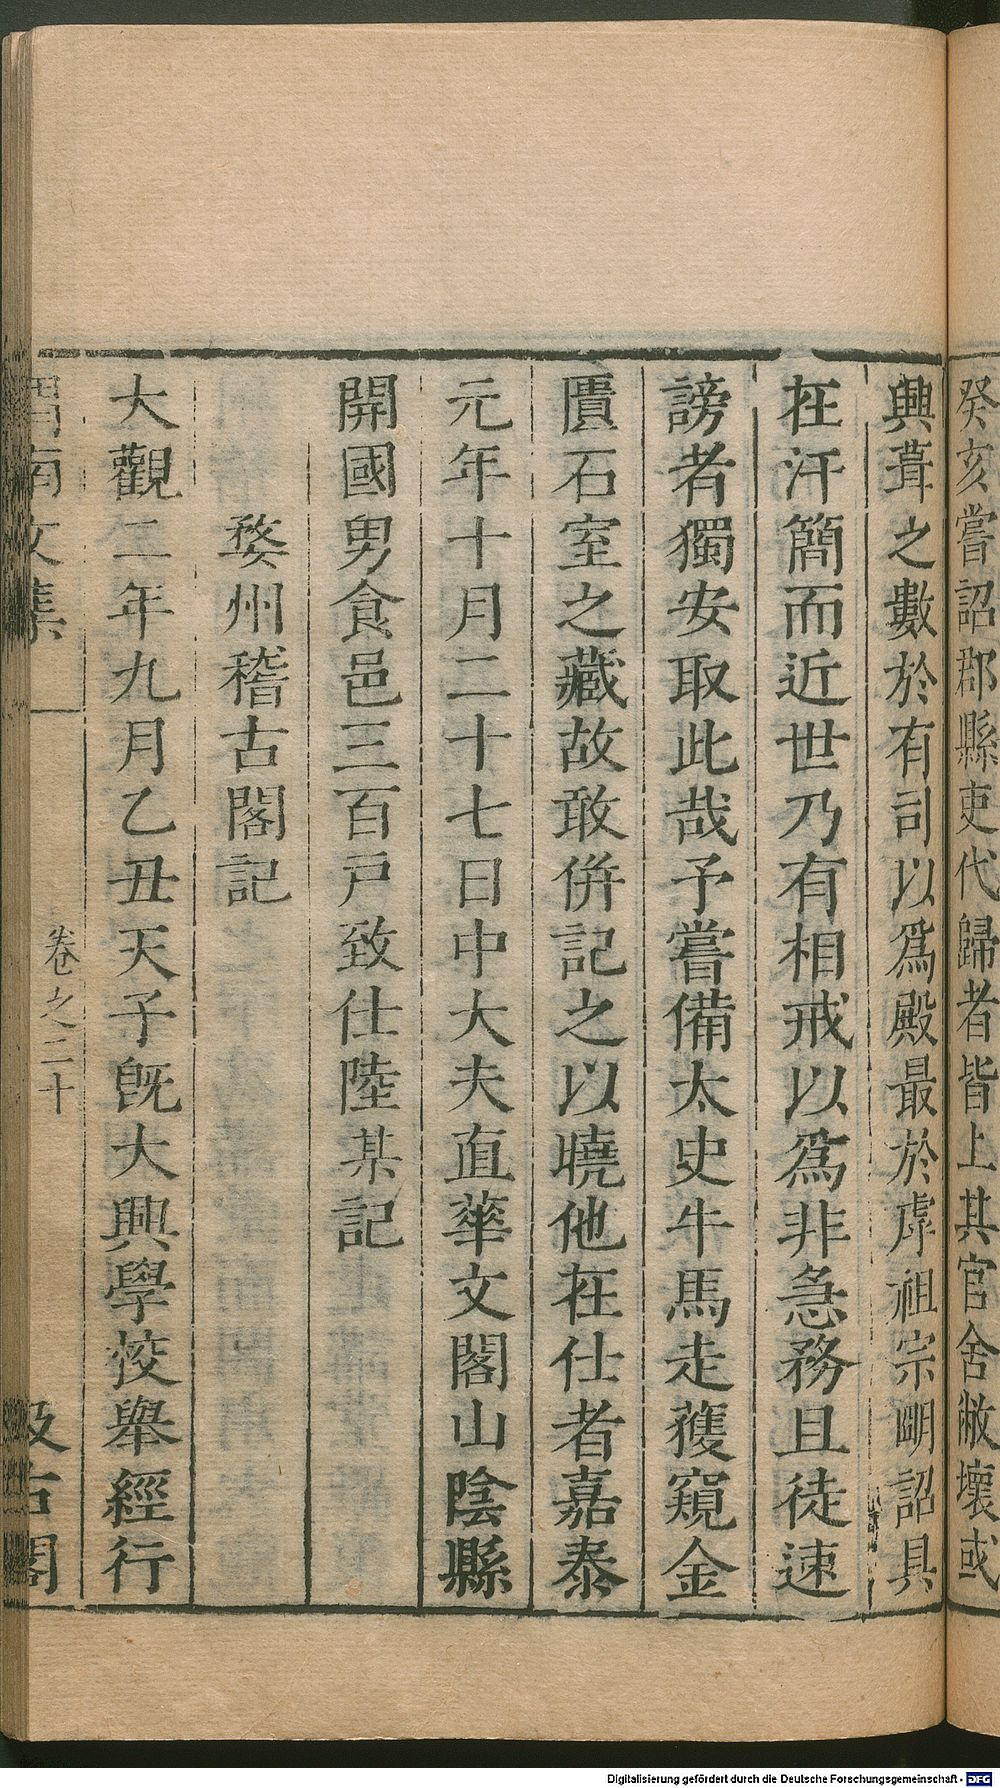 癸亥嘗詔郡縣吏代歸者皆上其官舍敝壞或
興葺之數於有司以爲殿最於虖祖宗朙詔具
在汗簡而近世乃有相戒以爲非急務且徒速
謗者獨安取此哉予嘗備太史牛馬走獲窺金
匱石室之藏故敢併記之以曉他在仕者嘉泰
元年十月二十七日中大夫直華文閣山陰縣
開國男食邑三百戸致仕陸某記
婺州稽古閣記
大觀二年九月乙丑天子旣大興學校舉經行
南文集
卷之二十
汲古閣
Digitalisierung gefördert durch die Deutsche Forschungsgemeinschaft - DFG